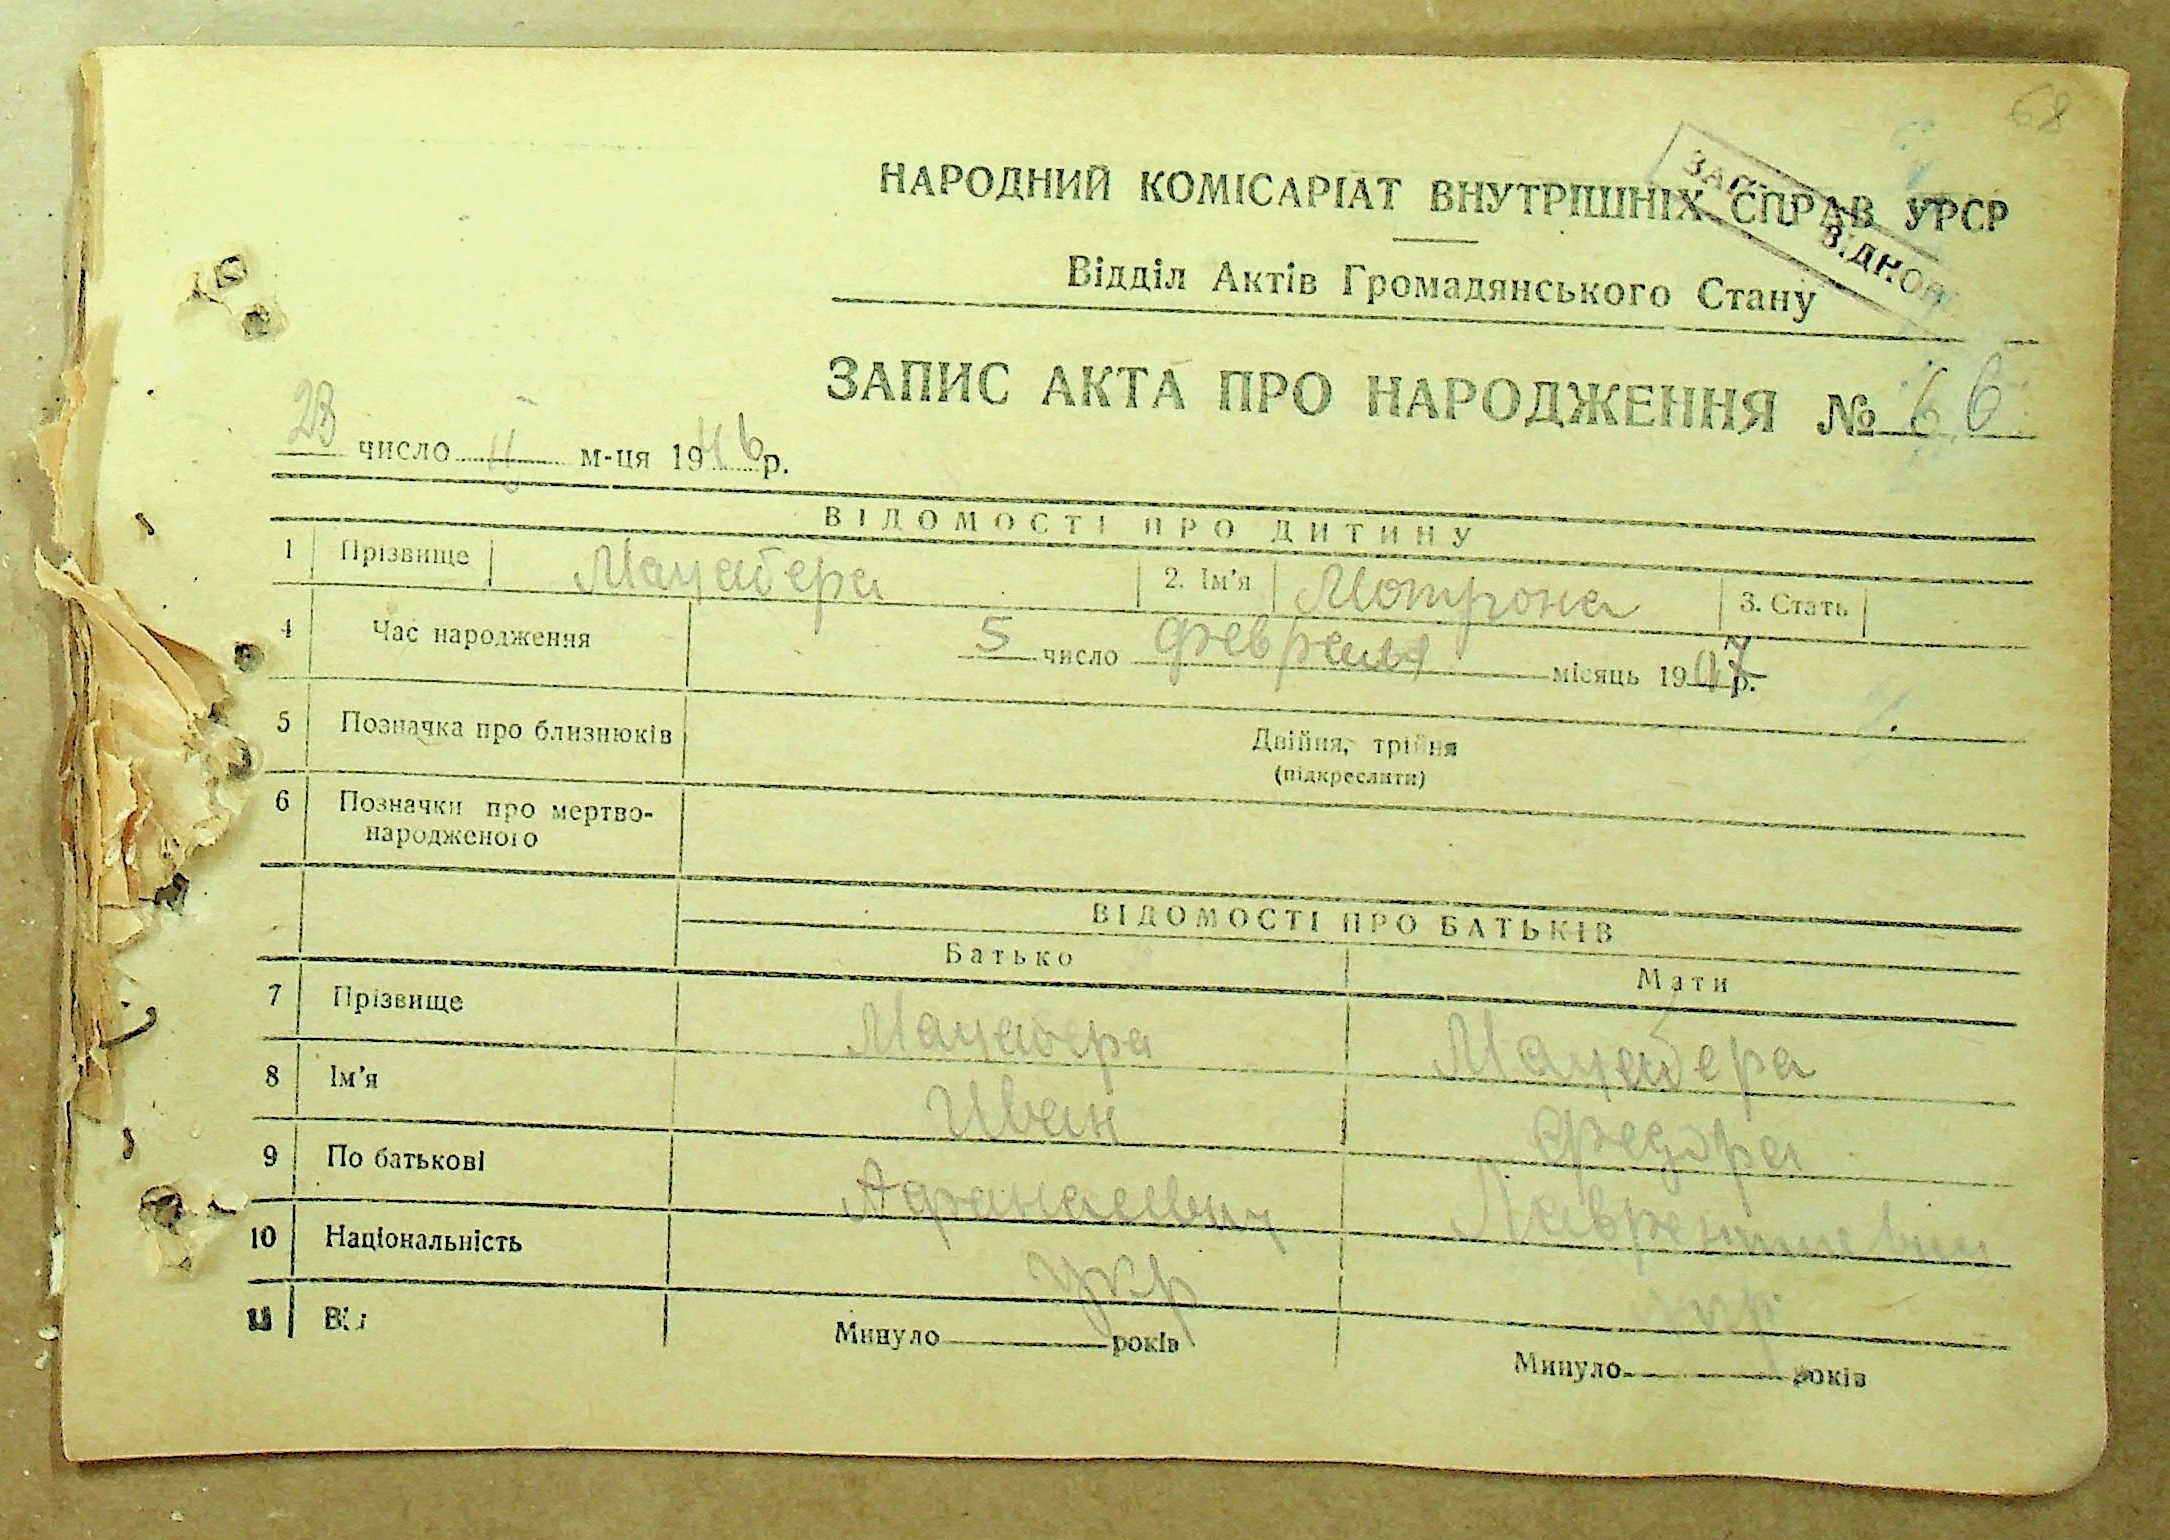 68
НАРОДНИЙ КОМІСАРІАТ ВНУТРІШНІХ СПРАВ УРСР
Відділ Актів Громадянського Стану
ЗАПИС АКТА ПРО НАРОДЖЕННЯ № 66
23 число II м-ця 1946 р.
ВІДОМОСТІ ПРО ДИТИНУ
1 Прізвище Мацабера 2. Ім'я Мотрона 3. Стать
4 Час народження 5 число февраля місяць 1907 р.
5 Позначка про близнюків Двійня, трійня
(підкреслити)
6 Позначки про мертво-
народженого
ВІДОМОСТІ ПРО БАТЬКІВ
Батько Мати
7 Прізвище Мацабера Мацабера
8 Ім'я Иван Федора
9 По батькові Афанасевич Лаврентиевна
10 Національність укр укр.
11 Минуло років Минуло років